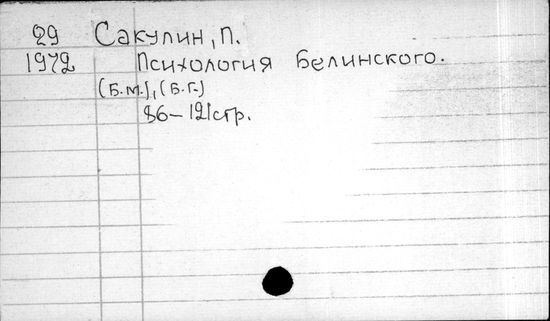 29 Сакулин, П.
1972 Психология Белинского.
(Б.М.), (Б.Г.)
86-121стр.